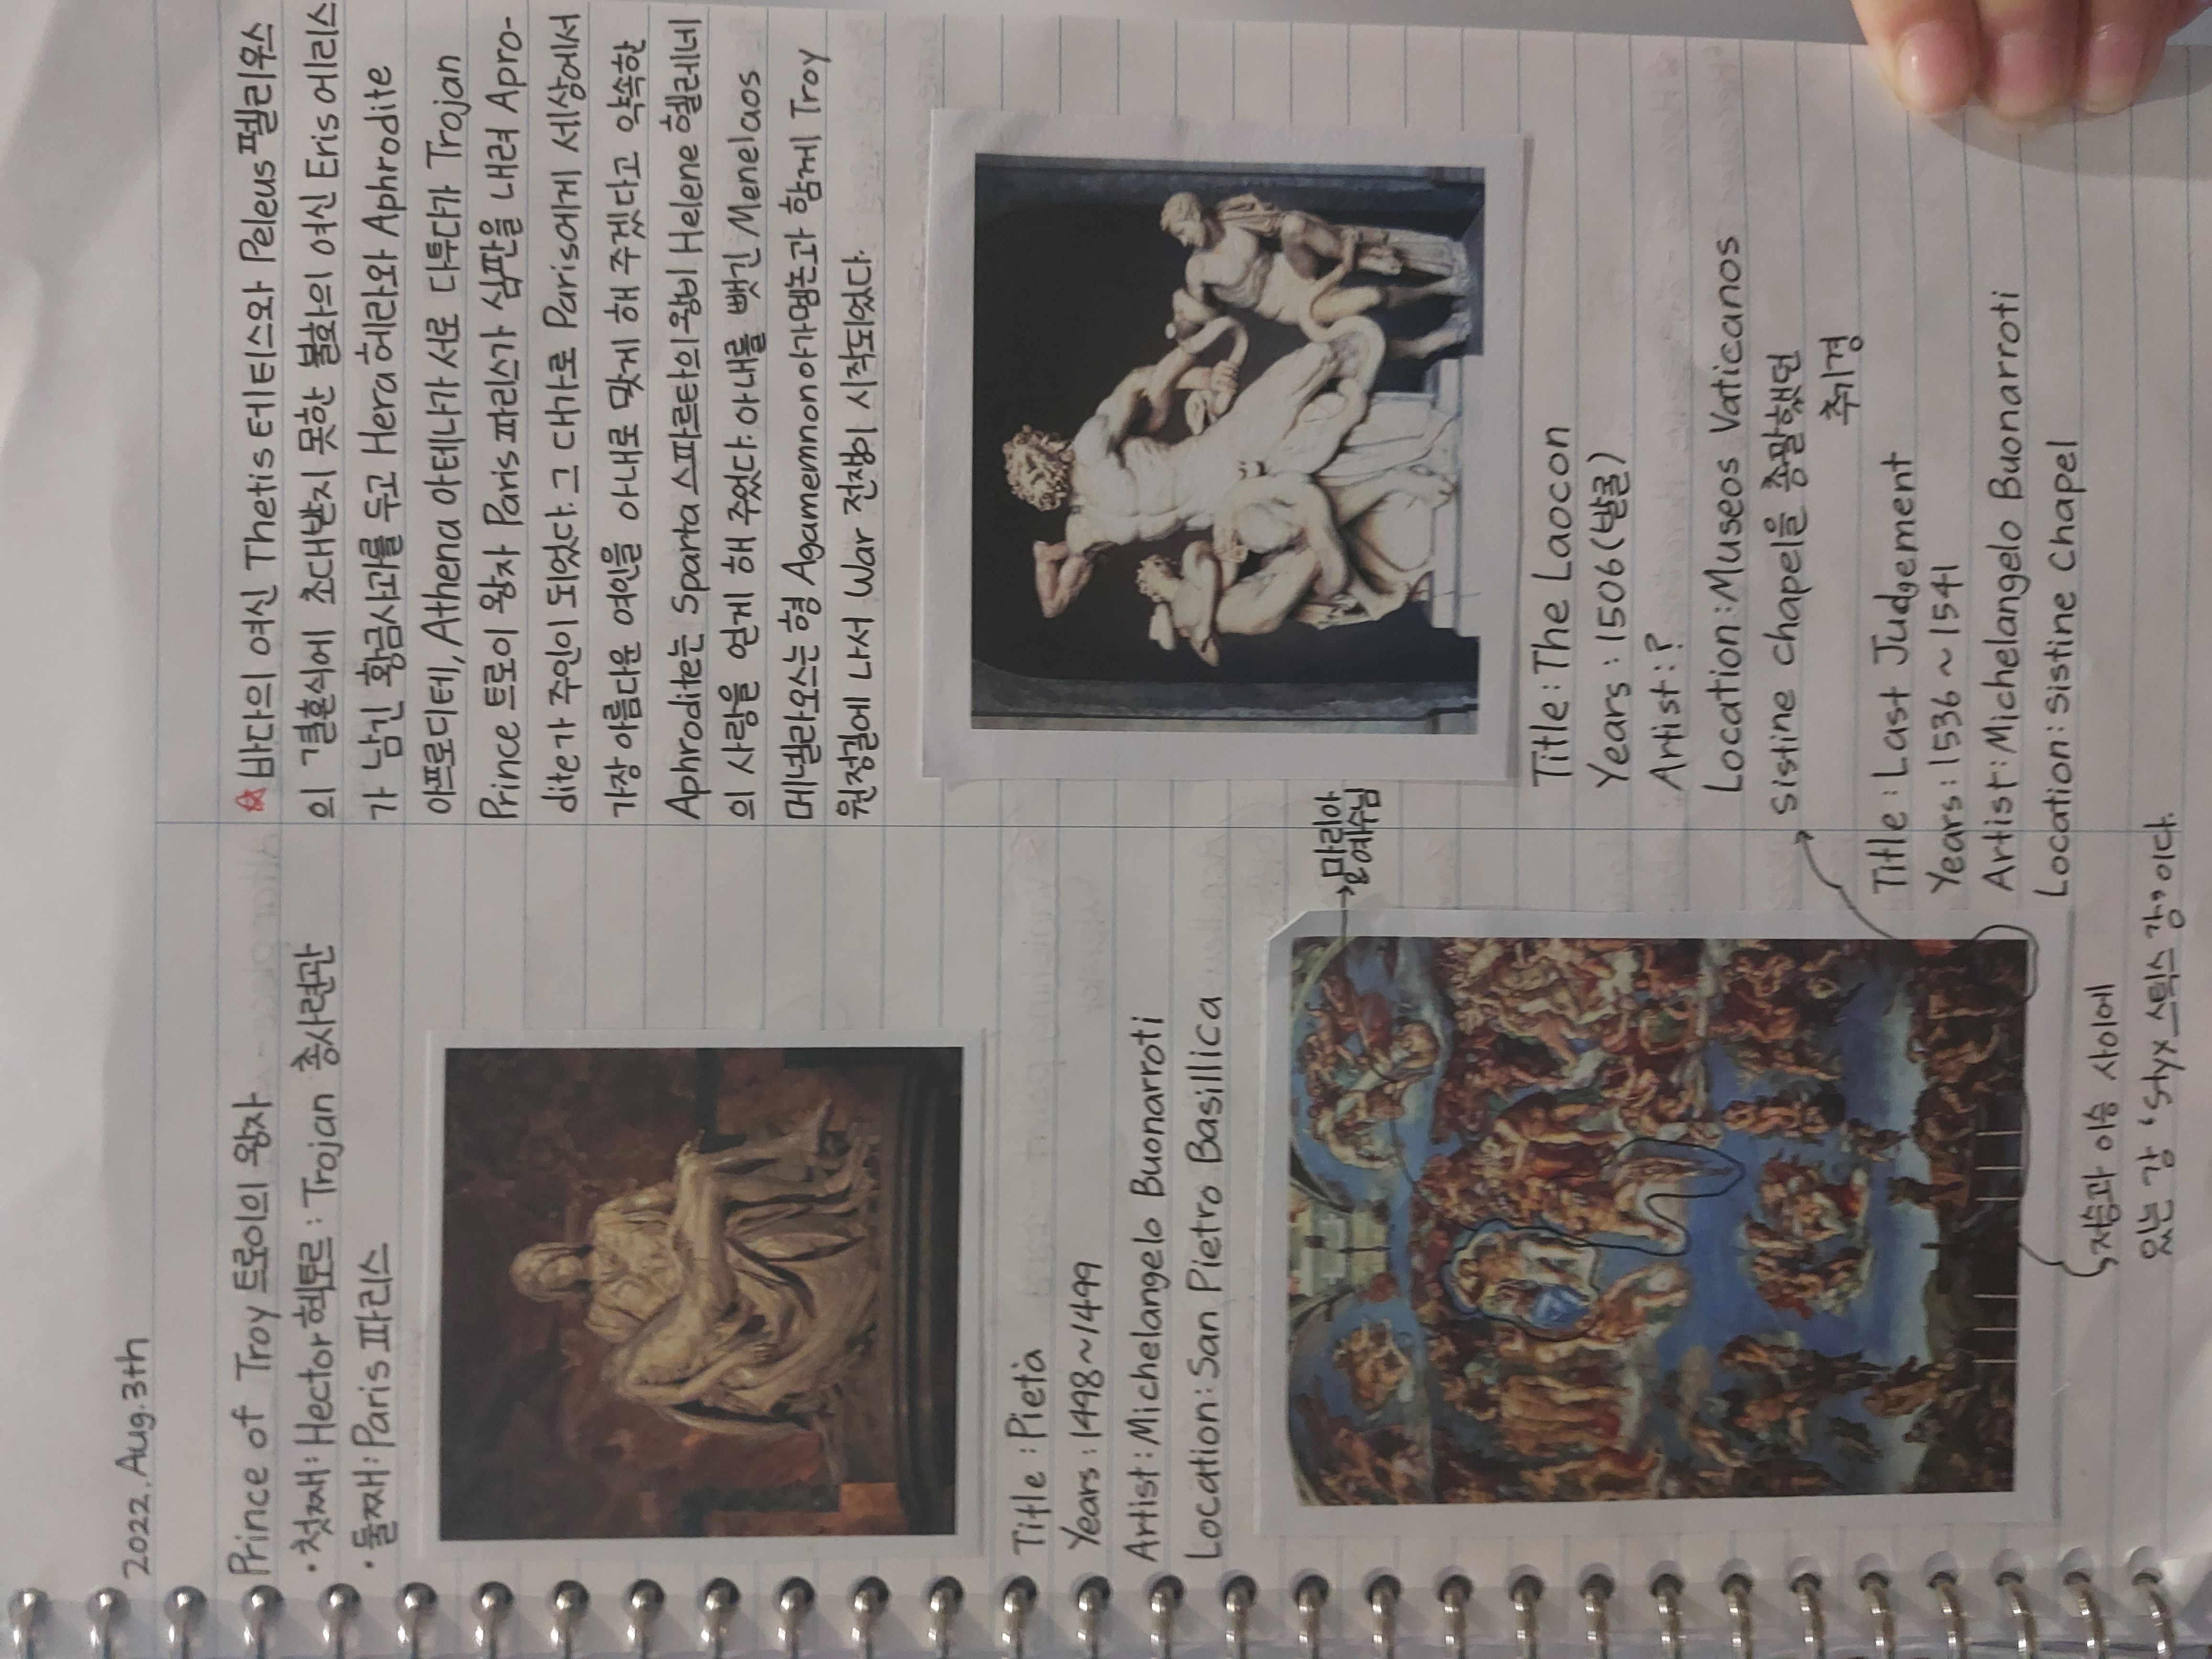 2022. Aug. 3th
Prince of Troy 트로이의 왕자
· 첫째 : Hector 헥토르 : Trojan 총사령관
· 둘째 : Paris 파리스
Title : Pietà
Years : 1498 ~ 1499
Artist : Michelangelo Buonarroti
Location : San Pietro Basillica
→ 마리아
& 예수님
저승과 이승 사이에
있는 강 'Styx 스틱스 강'이다.
☆ 바다의 여신 Thetis 테티스와 Peleus 펠리우스
의 결혼식에 초대받지 못한 불화의 여신 Eris 에리스
가 남긴 황금사과를 두고 Hera 헤라와 Aphrodite
아프로디테, Athena 아테나가 서로 다투다가 Trojan
Prince 트로이 왕자 Paris 파리스가 심판을 내려 Apro-
dite가 주인이 되었다. 그 대가로 Paris에게 세상에서
가장 아름다운 여인을 아내로 맞게 해 주겠다고 약속한
Aphrodite는 Sparta 스파르타의 왕비 Helene 헬레네
의 사랑을 얻게 해 주었다. 아내를 뺏긴 Menelaos
메넬라오스는 형 Agamemnon 아가멤논과 함께 Troy
원정길에 나서 War 전쟁이 시작되었다.
Title : The Laocon
Years : 1506 (발굴)
Artist : ?
Location : Museos Vaticanos
sistine chapel을 총괄했던
추기경
Title : Last Judgement
Years : 1536 ~ 1541
Artist : Michelangelo Buonarroti
Location : sistine Chapel